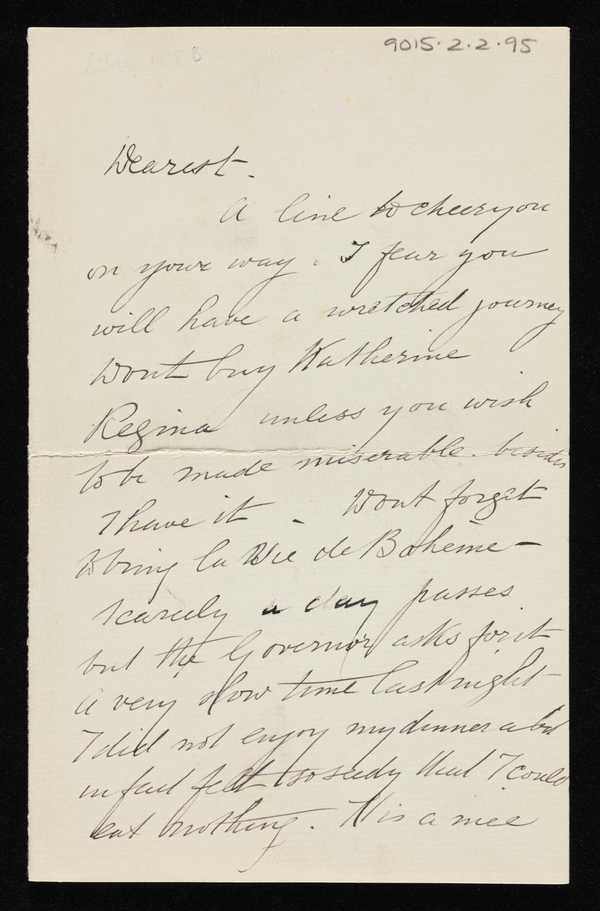 9015.2.2.95
Dearest.
A line to cheer you
on your way. I fear you
will have a wretched journey
Dont buy Katherine
Regina unless you wish
to be made miserable. besides
I have it - Dont forget
to bring la Vie de Bohême -
scarcely a day passes
but the Governor asks for it
A very slow time last night
I did not enjoy my dinner a bit
in fact felt so seedy that I could
eat nothing. It is a nice